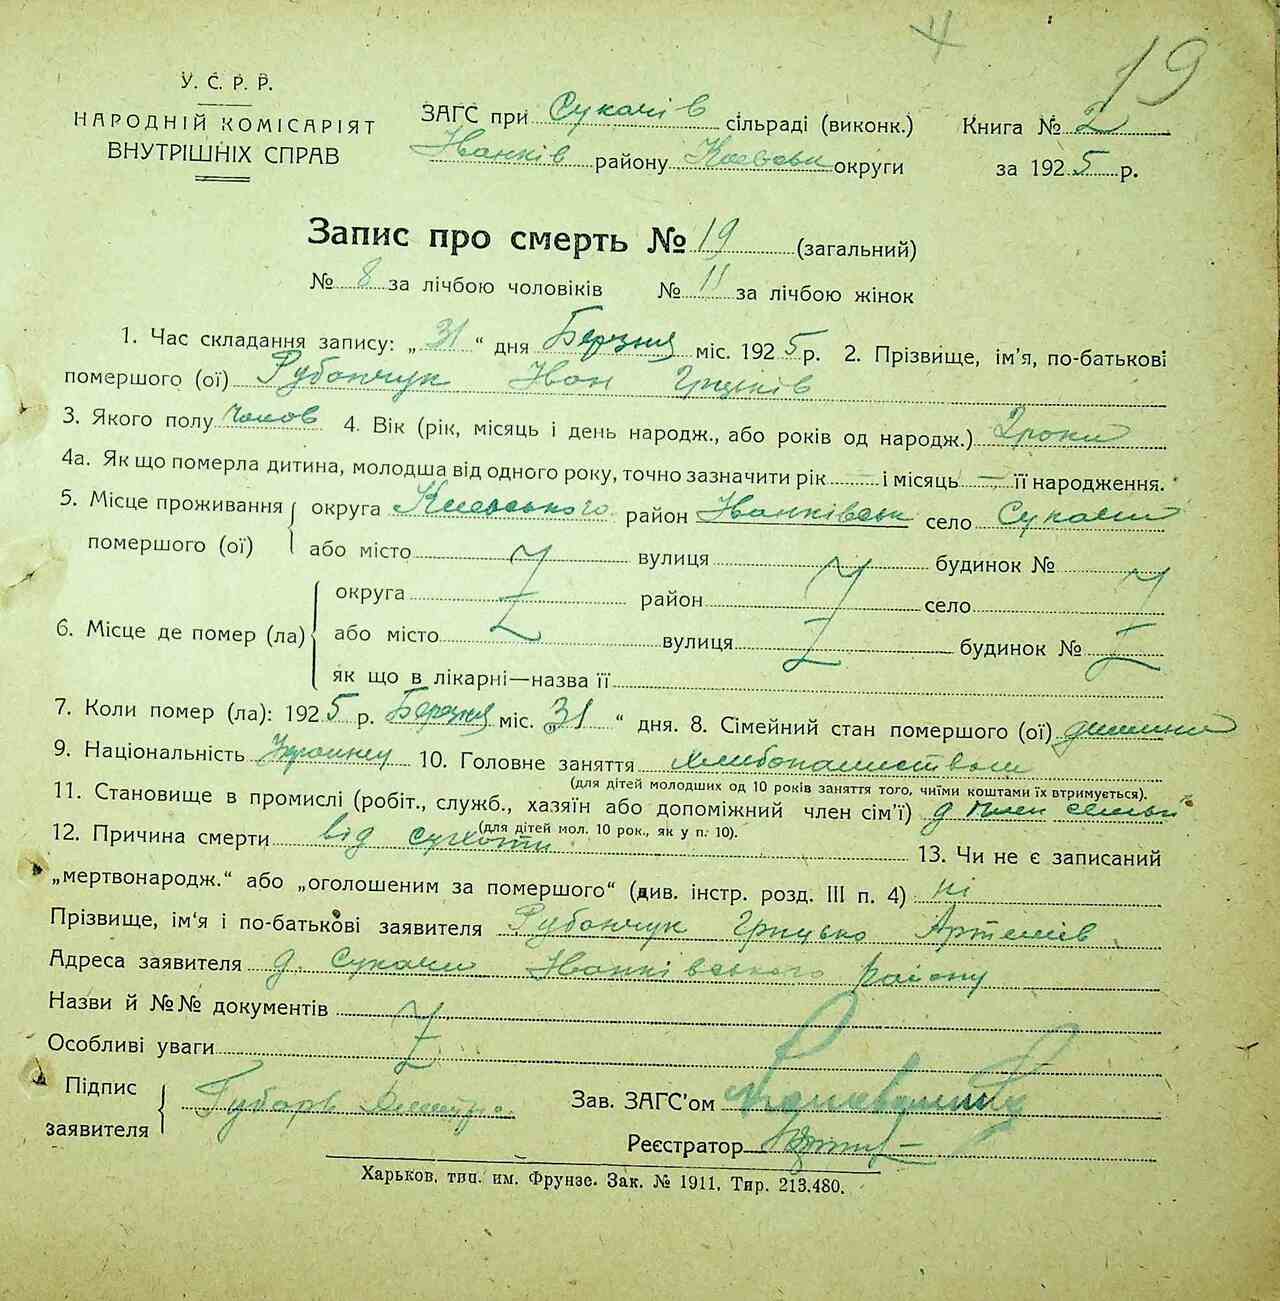 19
У. С. Р. Р.
НАРОДНІЙ КОМІСАРІЯТ
ВНУТРІШНІХ СПРАВ
ЗАГС при Сукачів сільраді (виконк.)
Іванків району Київськ округи
Книга № 2
за 1925 р.
Запис про смерть № 19 (загальний)
№ 8 за лічбою чоловіків № 11 за лічбою жінок
1. Час складання запису: „31“ дня Березня міс. 1925 р. 2. Прізвище, ім'я, по-батькові
помершого (ої) Рубанчук Іван Грицьків
3. Якого полу Чолов 4. Вік (рік, місяць і день народж., або років од народж.) 2 роки
4а. Як що померла дитина, молодша від одного року, точно зазначити рік — і місяць — її народження.
5. Місце проживання помершого (ої) округа Киевського район Іванківськ село Сукачи
або місто вулиця будинок №
6. Місце де помер (ла) округа район село
або місто Z вулиця Z будинок № Z
як що в лікарні—назва її
7. Коли помер (ла): 1925 р. Березня міс. „31“ дня. 8. Сімейний стан помершого (ої) дитина
9. Національність Украинец 10. Головне заняття хлибопашеством
(для дітей молодших од 10 років заняття того, чиїми коштами їх втримується).
11. Становище в промислі (робіт., служб., хазяїн або допоміжний член сім'ї) д член семьи
(для дітей мол. 10 рок., як у п. 10).
12. Причина смерти від сухоти 13. Чи не є записаний
„мертвонародж.“ або „оголошеним за помершого“ (див. інстр. розд. III п. 4) ні
Прізвище, ім'я і по-батькові заявителя Рубанчук Грицько Артемів
Адреса заявителя д. Сукачи Іванківського району
Назви й №№ документів Z
Особливі уваги
Підпис заявителя
Зав. ЗАГС'ом
Реєстратор
Харьков, тип. им. Фрунзе. Зак. № 1911, Тир. 213.480.